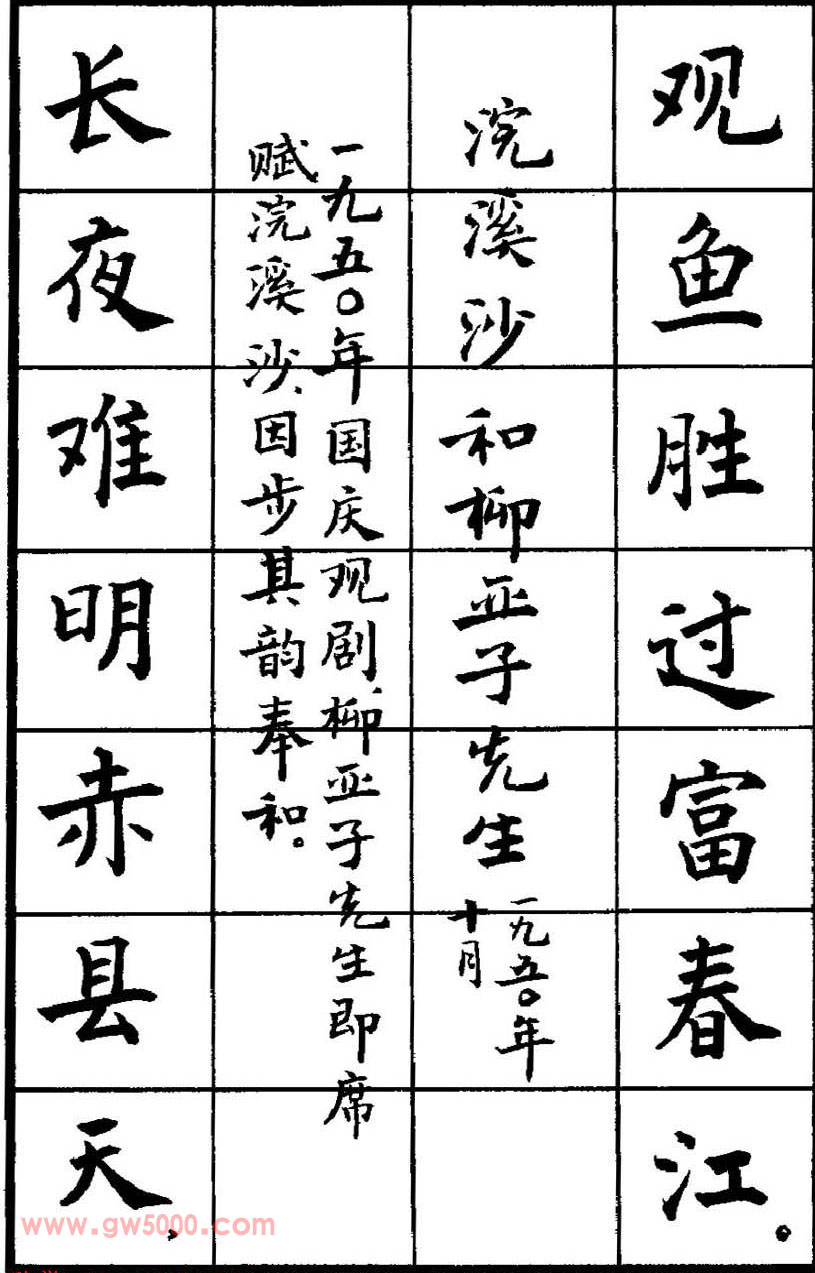 观鱼胜过富春江。
浣溪沙 和柳亚子先生 一九五〇年
十月
一九五〇年国庆观剧，柳亚子先生即席
赋浣溪沙，因步其韵奉和。
长夜难明赤县天，
www.gw5000.com